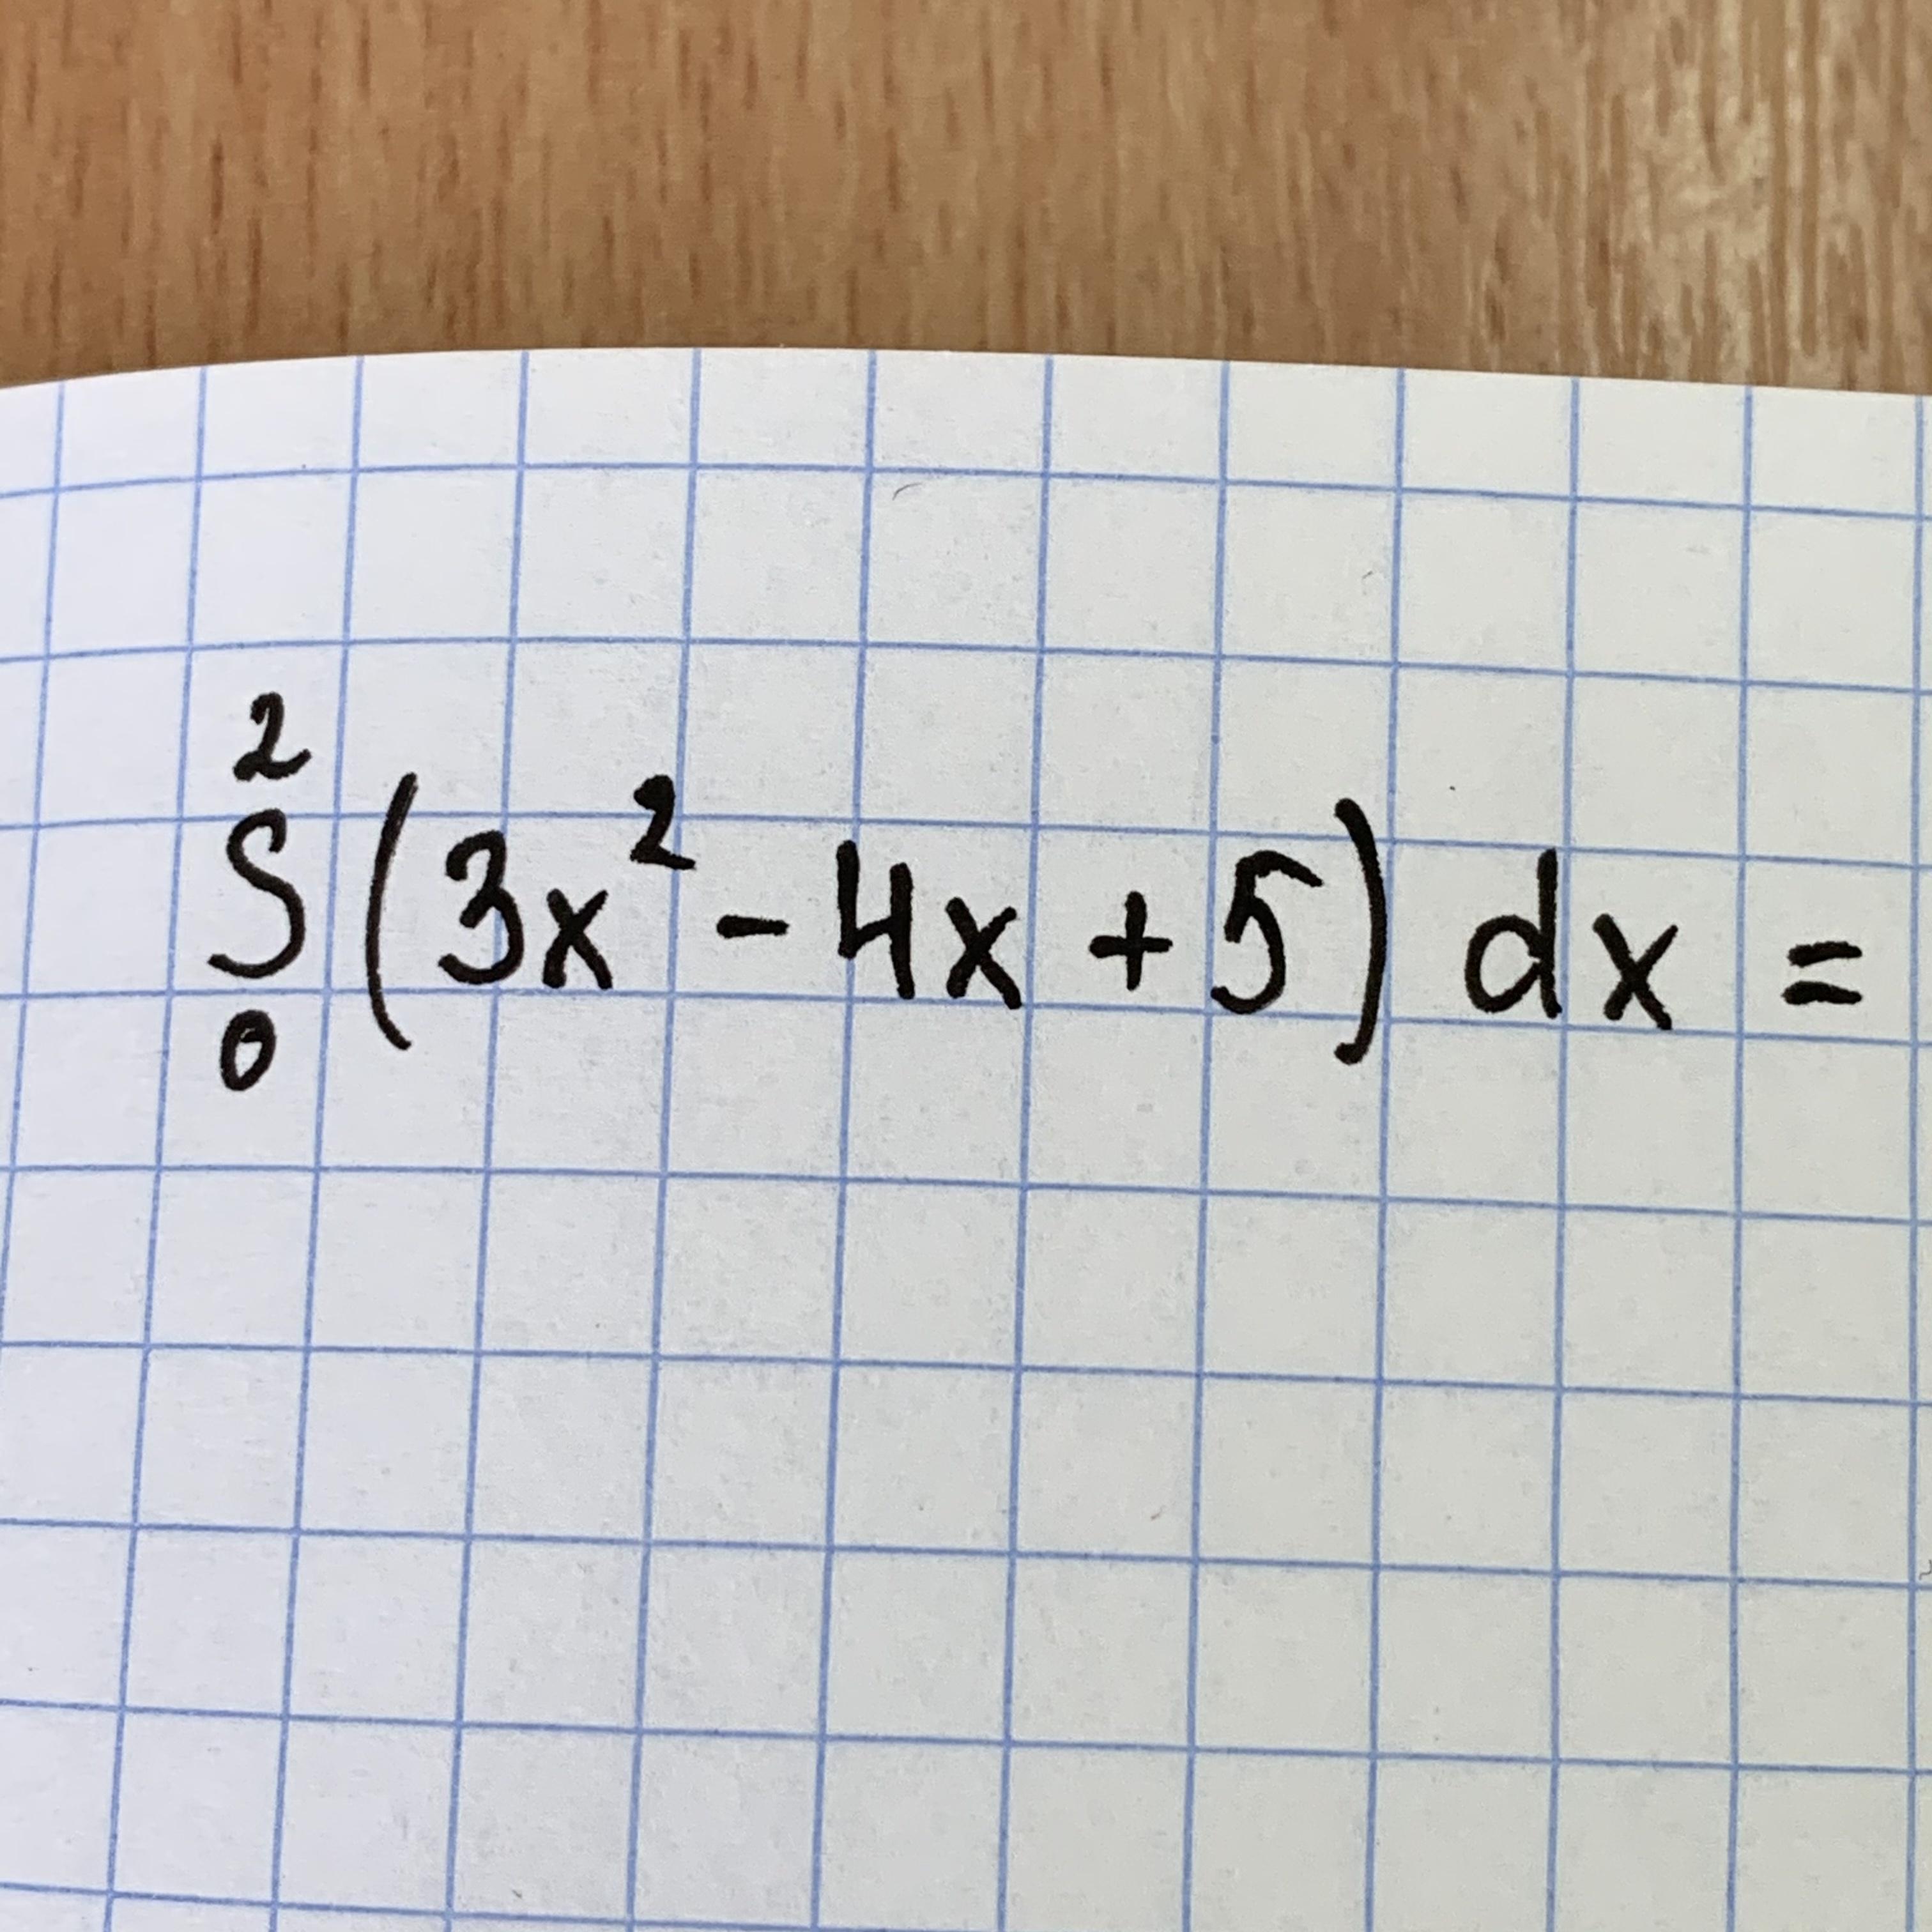 2
∫ (3x² - 4x + 5) dx =
0